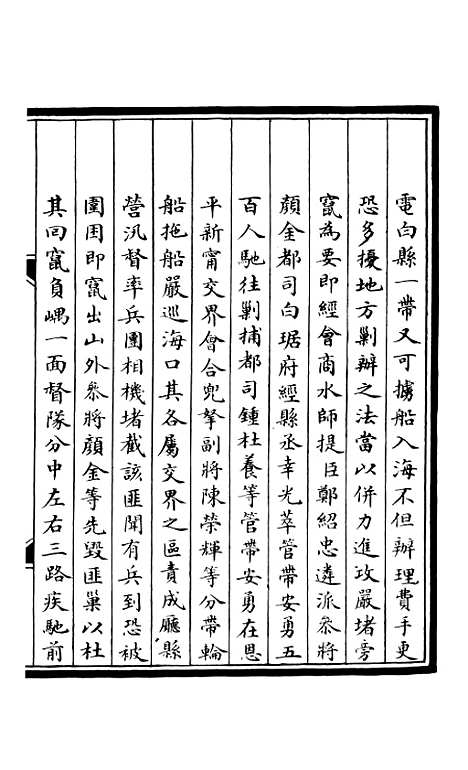 電白縣一帶又可擄船入海不但辦理費手更
恐多擾地方剿辦之法當以併力進攻嚴堵旁
竄為要即經會商水師提臣鄭紹忠遴派叅將
顏金都司白琚府經縣丞幸光萃管帶安勇五
百人馳往剿捕都司鍾杜養等管帶安勇在恩
平新甯交界會合兜拏副將陳榮輝等分帶輪
船拖船嚴巡海口其各屬交界之區責成廳縣
營汛督率兵團相機堵截該匪聞有兵到恐被
圍困即竄出山外叅將顏金等先毀匪巢以杜
其回竄負嵎一面督隊分中左右三路疾馳前